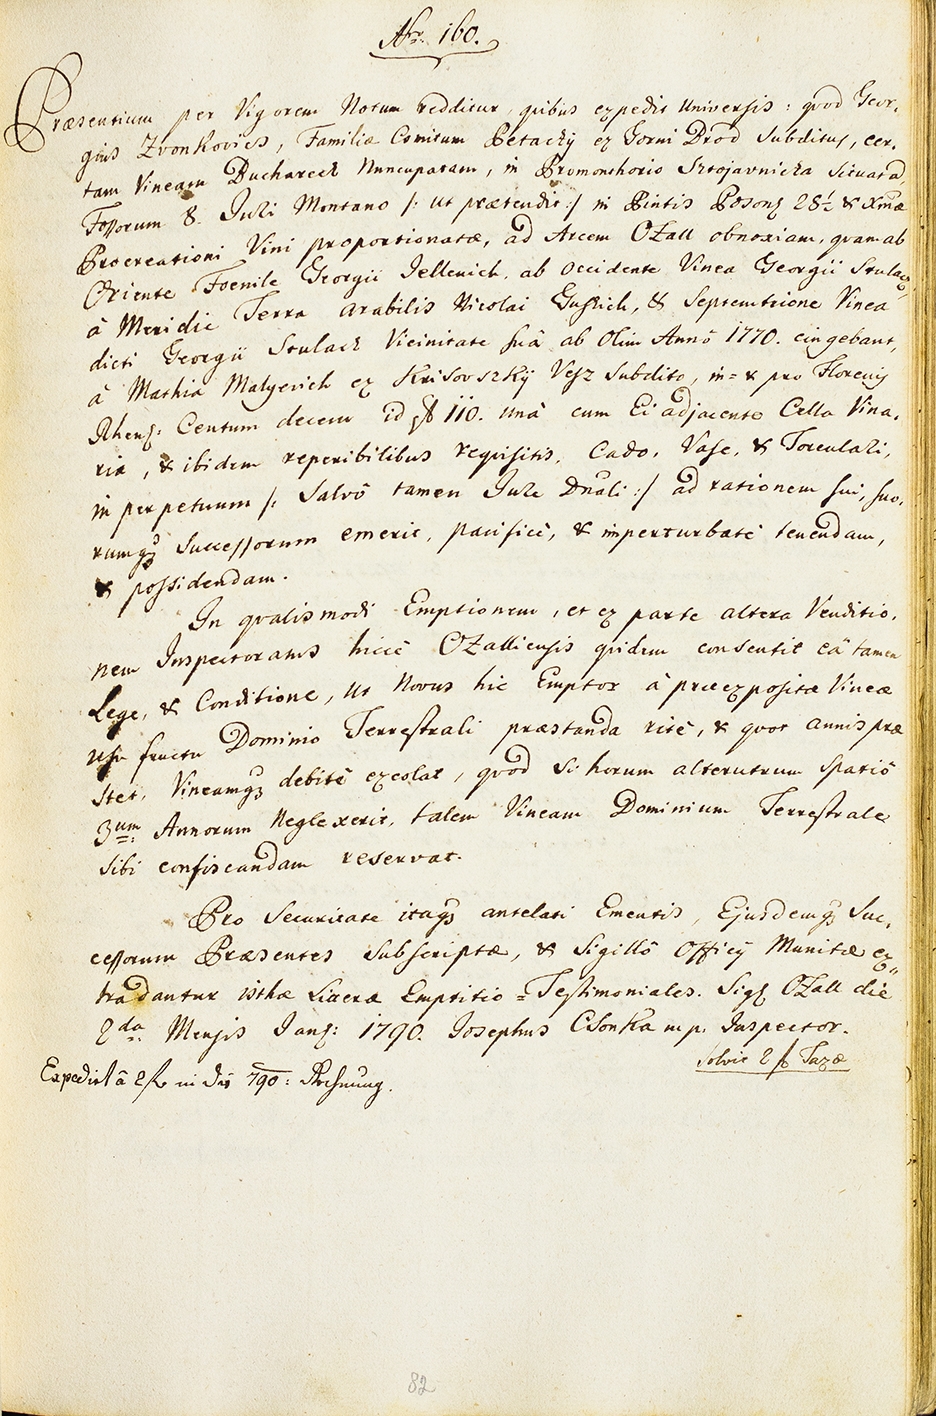 Nr. 160.
Præsentium per Vigorem Notum redditur, quibus expedit Universis: quod Geor-
gius Zvonkovics, Familiæ Comitum Petachy ex Gorni Drod Subditus, cer-
tam Vineam Buchareck Nuncupatam, in Promonthorio Sztojavnicka Situatã,
Fossorum 8. Juri Montano /: ut prætendit :/ in Pintis Poson: 28½ & Xmæ
Procreationi Vini proportionatæ, ad Arcem Ozall obnoxiam, quam ab
Oriente Foenile Georgii Jellenich, ab Occidente Vinea Georgii Stulacz,
â Meridie Terra arabilis Nicolai Gussich, & Septemtrione Vinea
dicti Georgii Stulack Vicinitate suâ ab Olim Annô 1770. cingebant,
â Mathia Malyevich ex Krisovszkij Vesz Subdito, in= & pro Florenis
Rhens: Centum decem id est f 110. unâ cum Ei adjacente Cella Vina-
ria, & ibidem reperibilibus requisitis, Cado, Vase, & Torculari,
in perpetuum /: Salvô tamen Jure Dnali :/ ad rationem sui, suo-
rumq3 Successorum emerit, pacificè, & imperturbatè tenendam,
& possidendam.
In qualismodi Emptionem, et ex parte altera Venditio-
nem Inspectoratus hicce Ozalliensis quidem consentit eâ tamen
Lege, & Conditione, ut Novus hic Emptor â præexpositæ Vineæ
usu fructu Dominio Terrestrali præstanda ritè, & quot annis præ
stet, Vineamq3 debitè excolat, quod si horum alterutrum spatiô
3um Annorum Neglexerit, talem Vineam Dominium Terrestrale
sibi confiscandam reservat.
Pro Securitate itaq3 antelati Ementis, Ejusdemq3 Suc-
cessorum Præsentes subscriptæ, & Sigillô Officij Munitæ ex-
tradantur isthæ Literæ Emptitio=Testimoniales. Sig: Ozall die
2da Mensis Jan: 1790. Josephus Csonka mp. Inspector.
Solvit 2 f Taxæ
Expedirt â 2 f in die 790: Rechnung.
82